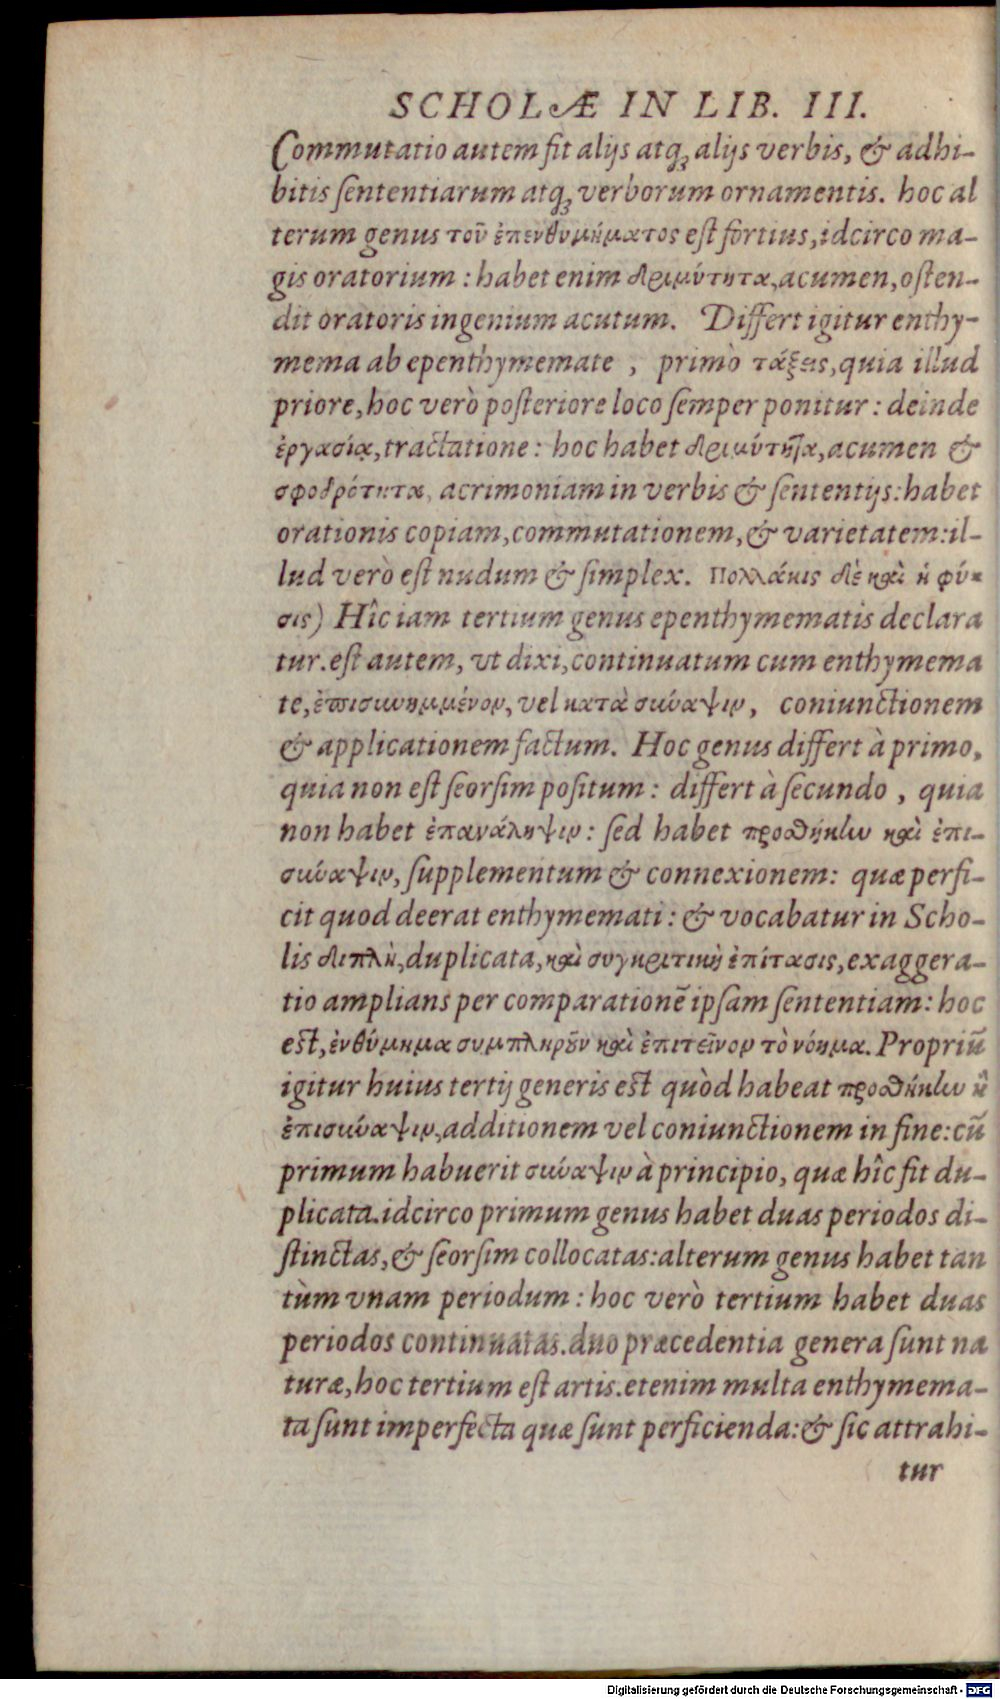 SCHOLÆ IN LIB. III.
Commutatio autem fit alijs atq; alijs verbis, & adhi-
bitis ſententiarum atq; verborum ornamentis. hoc al
terum genus τοῦ ἐπενθυμήματος eſt fortius, idcirco ma-
gis oratorium : habet enim δριμύτητα, acumen, oſten-
dit oratoris ingenium acutum. Differt igitur enthy-
mema ab epenthymemate , primò τάξεις, quia illud
priore, hoc verò poſteriore loco ſemper ponitur : deinde
ἐργασίᾳ, tractatione : hoc habet δριμύτητα, acumen &
σφοδρότητα, acrimoniam in verbis & ſententijs: habet
orationis copiam, commutationem, & varietatem: il-
lud verò eſt nudum & ſimplex. Πολλάκις δὲ καὶ ἡ φύ-
σις) Hîc iam tertium genus epenthymematis declara
tur. eſt autem, vt dixi, continuatum cum enthymema
te, ἐπισυνημμένον, vel κατὰ σύναψιν, coniunctionem
& applicationem factum. Hoc genus differt à primo,
quia non eſt ſeorſim poſitum : differt à ſecundo , quia
non habet ἐπανάληψιν : ſed habet προσθήκην καὶ ἐπι-
σύναψιν, ſupplementum & connexionem: quæ perfi-
cit quod deerat enthymemati : & vocabatur in Scho-
lis διπλῆ, duplicata, καὶ συγκριτικὴ ἐπίτασις, exaggera-
tio amplians per comparationē ipſam ſententiam: hoc
eſt, ἐνθύμημα συμπληροῦν καὶ ἐπιτεῖνον τὸ νόημα. Propriū
igitur huius tertij generis eſt quòd habeat προσθήκην κ̀
ἐπισύναψιν, additionem vel coniunctionem in fine: cū
primum habuerit σύναψιν à principio, quæ hîc fit du-
plicata. idcirco primum genus habet duas periodos di-
ſtinctas, & ſeorſim collocatas: alterum genus habet tan
tùm vnam periodum : hoc verò tertium habet duas
periodos continuatas. duo præcedentia genera ſunt na
turæ, hoc tertium eſt artis. etenim multa enthymema-
ta ſunt imperfecta quæ ſunt perficienda: & ſic attrahi-
tur
Digitalisierung gefördert durch die Deutsche Forschungsgemeinschaft - DFG